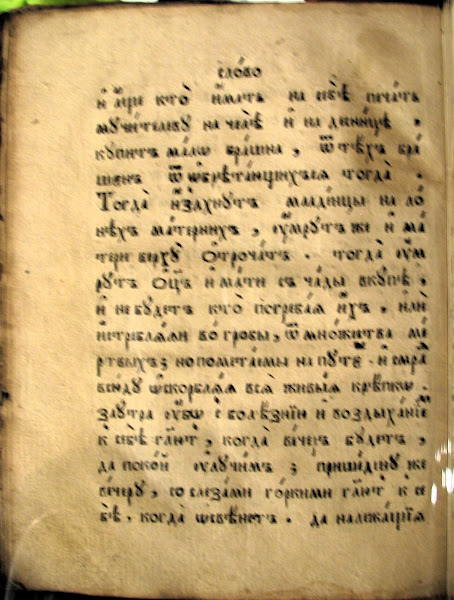 сло́во
и҆ а҆́ще кто̀ и҆́мать на себѣ̀ печа́ть
мꙋчи́телевꙋ на челѣ̀ и҆ на десни́цѣ,
кꙋпитъ ма́лѡ бра́шна, ѿ тѣ́хъ бра́
шенъ ѿ ѡ҆брѣта́ющихсѧ тогда̀.
Тогда̀ и҆зⸯдхнꙋтъ младе́нцы на ло́
нѣхъ ма́тернихъ, ᲂу҆́мрꙋтъ же и҆ ма́
тери верхꙋ̀ ѻ҆троча́тъ. тогда̀ ᲂу҆́м
рꙋтъ ѻ҆ц҃ъ и҆ ма́ти съ ча́ды вкꙋ́пѣ,
и҆ не бꙋ́детъ кто̀ погреба́ѧ и҆́хъ, и҆лѝ
во́ гробы, ѿ мно́жества ме́
ртвыхъ; но помета́емы на пꙋтѐ. и҆ смра́
всю́дꙋ ѡ҆скорблѧ́ѧ всѧ̀ живы́ѧ крѣ́пкѡ.
заꙋ́тра ᲂу҆́бѡ с болѣ́знїю и҆ воздыха́нїе
к себѣ̀ гл҃ютъ, когда̀ ве́черъ бꙋ́детъ,
да поко́й ᲂу҆лꙋчи́мъ; прише́дшꙋ же
ве́черꙋ, со слеза́ми го́ркими гл҃ютъ к се
бѣ̀. когда̀ ѡ҆свѣне́тъ. да належа́щїѧ